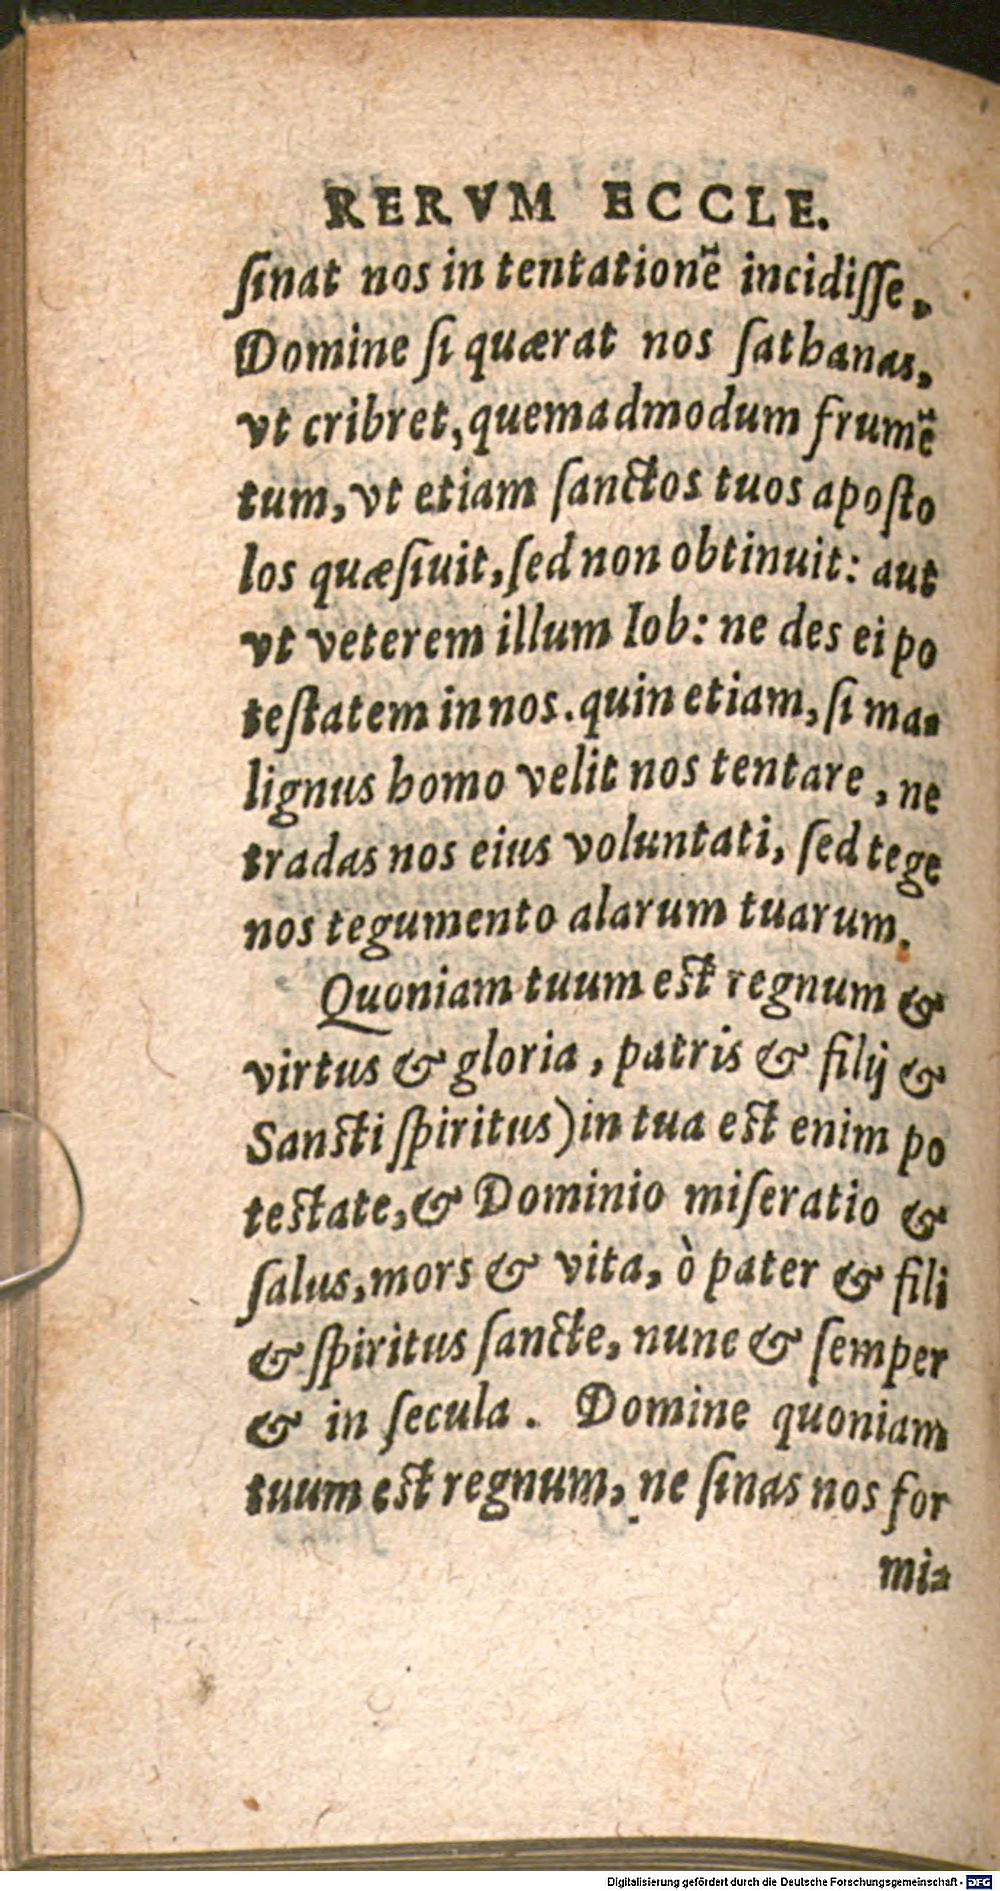 RERVM ECCLE.
ſinat nos in tentationē incidiſſe,
Domine ſi quærat nos ſathanas,
vt cribret, quemadmodum frumē
tum, vt etiam ſanctos tuos apoſto
los quæſiuit, ſed non obtinuit: aut
vt veterem illum Iob: ne des ei po
teſtatem in nos. quin etiam, ſi ma-
lignus homo velit nos tentare, ne
tradas nos eius voluntati, ſed tege
nos tegumento alarum tuarum.
Quoniam tuum eſt regnum &
virtus & gloria, patris & filij &
Sancti ſpiritus) in tua eſt enim po
teſtate, & Dominio miſeratio &
ſalus, mors & vita, ò pater & fili
& ſpiritus ſancte, nunc & ſemper
& in ſecula. Domine quoniam
tuum eſt regnum, ne ſinas nos for
mi-
Digitalisierung gefördert durch die Deutsche Forschungsgemeinschaft - DFG